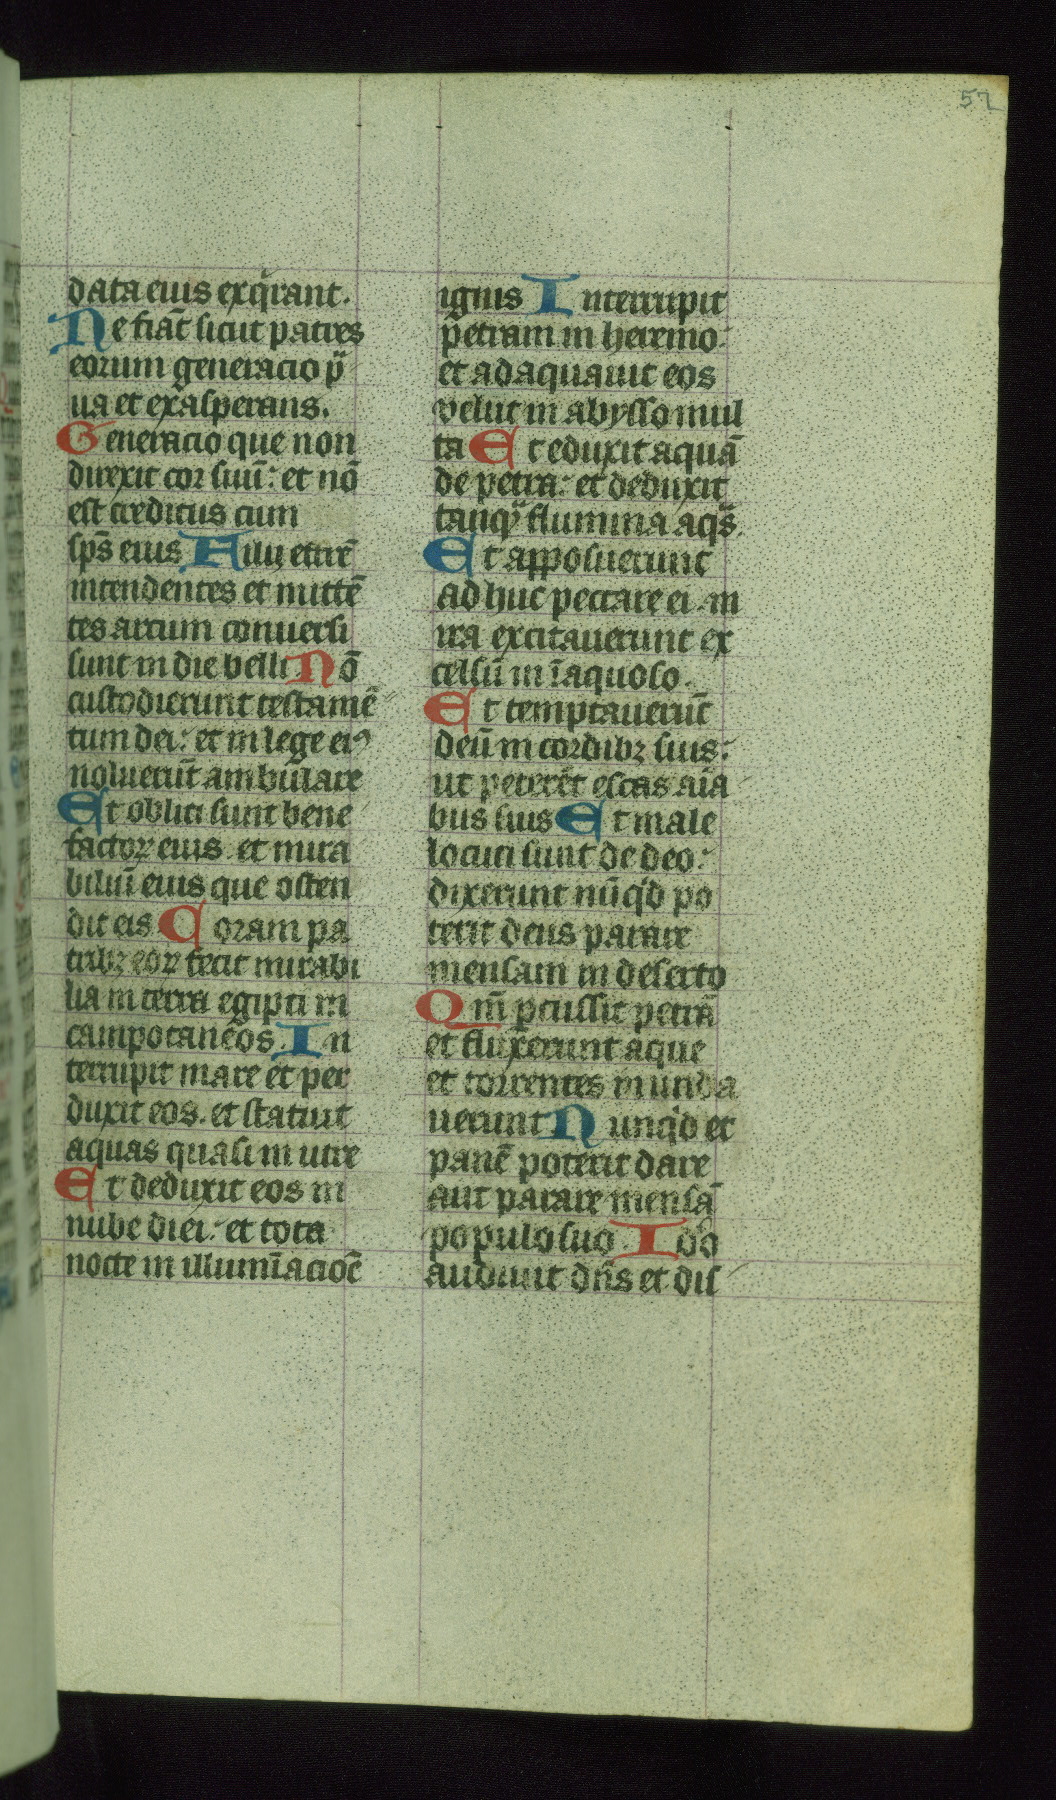 57
data eius exq̇rant.
Ne fiāt sicut patres
eorum generacio p̄
ua et exasperans.
Generacio que non
direxit cor suū: et nō
est creditus cum
sp̄s eius Filii effrē
intendentes et mittē
tes arcum conuersi
sunt in die belli Nō
custodierunt testamē
tum dei: et in lege eiꝰ
noluerūt ambulare
Et obliti sunt bene
factoꝝ eius et mira
biliū eius que osten
dit eis Coram pa
tribꝫ eoꝝ fecit mirabi
lia in terra egipti in
campo taneos. In
terrupit mare et per
duxit eos. et statuit
aquas quasi in utre
Et deduxit eos in
nube diei: et tota
nocte in illumīacioē
ignis Interrupit
petram in heremo
et adaquauit eos
velut in abysso mul
ta Et eduxit aquā
de petra: et deduxit
tanqͣ flumina aqͣs.
Et apposuerunt
adhuc peccare ei in
ira excitauerunt ex
celsū in īaquoso.
Et temptauerūt
deū in cordibꝫ suis:
ut peterēt escas aīa
bus suis Et male
locuti sunt de deo:
dixerunt nūq̇d po
terit deus parare
mensam in deserto
Qm̄ ꝑcussit petrā
et fluxerunt aque
et torrentes inunda
uerunt Nunq̇d et
panē poterit dare
aut parare mensā
populo suo Idͦo
audiuit dn̄s et dis